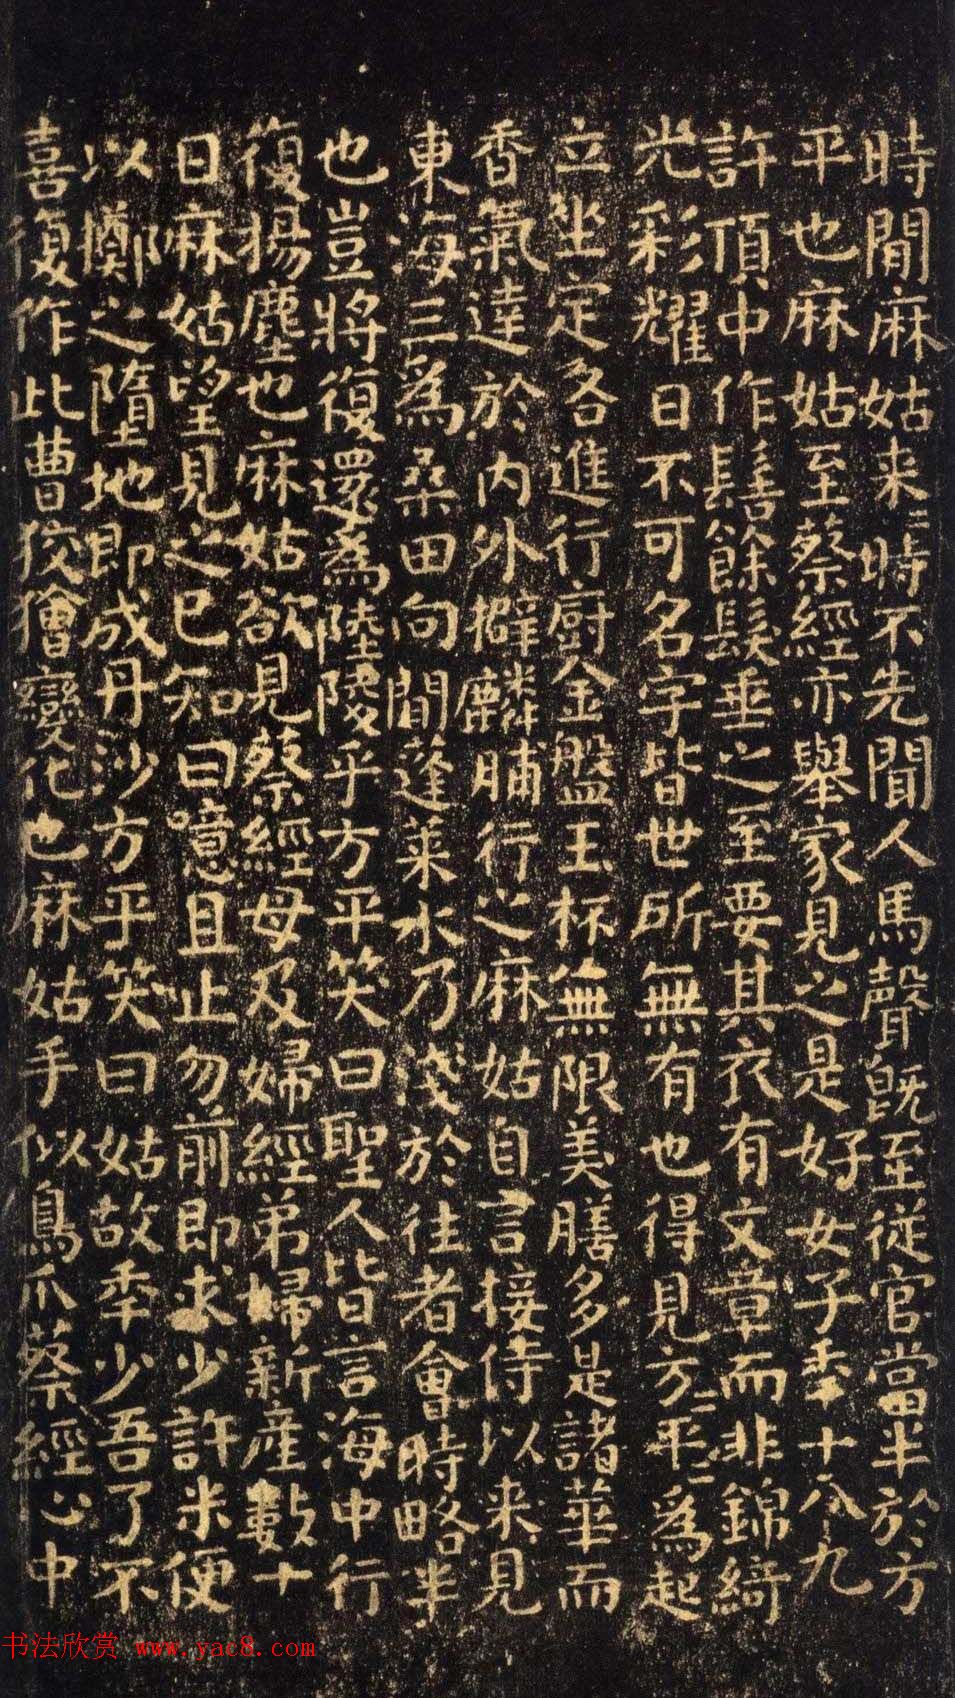 時間麻姑来=時不先聞人馬聲既至從官當半於方
平也麻姑至蔡經亦舉家見之是好女子秊十八九
許頂中作髻餘髮垂之至要其衣有文章而非錦綺
光彩耀日不可名字皆世所無有也得見方=平=為起
立坐定各進行廚金盤玉杯無限美膳多是諸華而
香氣達於内外擗麟脯行之麻姑自言接侍以来見
東海三為桑田向間蓬萊水乃淺於往者會時略半
也豈將復還為陸陵乎方平笑曰聖人皆言海中行
復揚塵也麻姑欲見蔡經母及婦經弟婦新產數十
日麻姑望見之已知曰噫且止勿前即求少許米便
以擲之墮地即成丹沙方平笑曰姑故秊少吾了不
喜復作此曹狡獪變化也麻姑手似鳥爪蔡經心中
书法欣赏 www.yac8.com